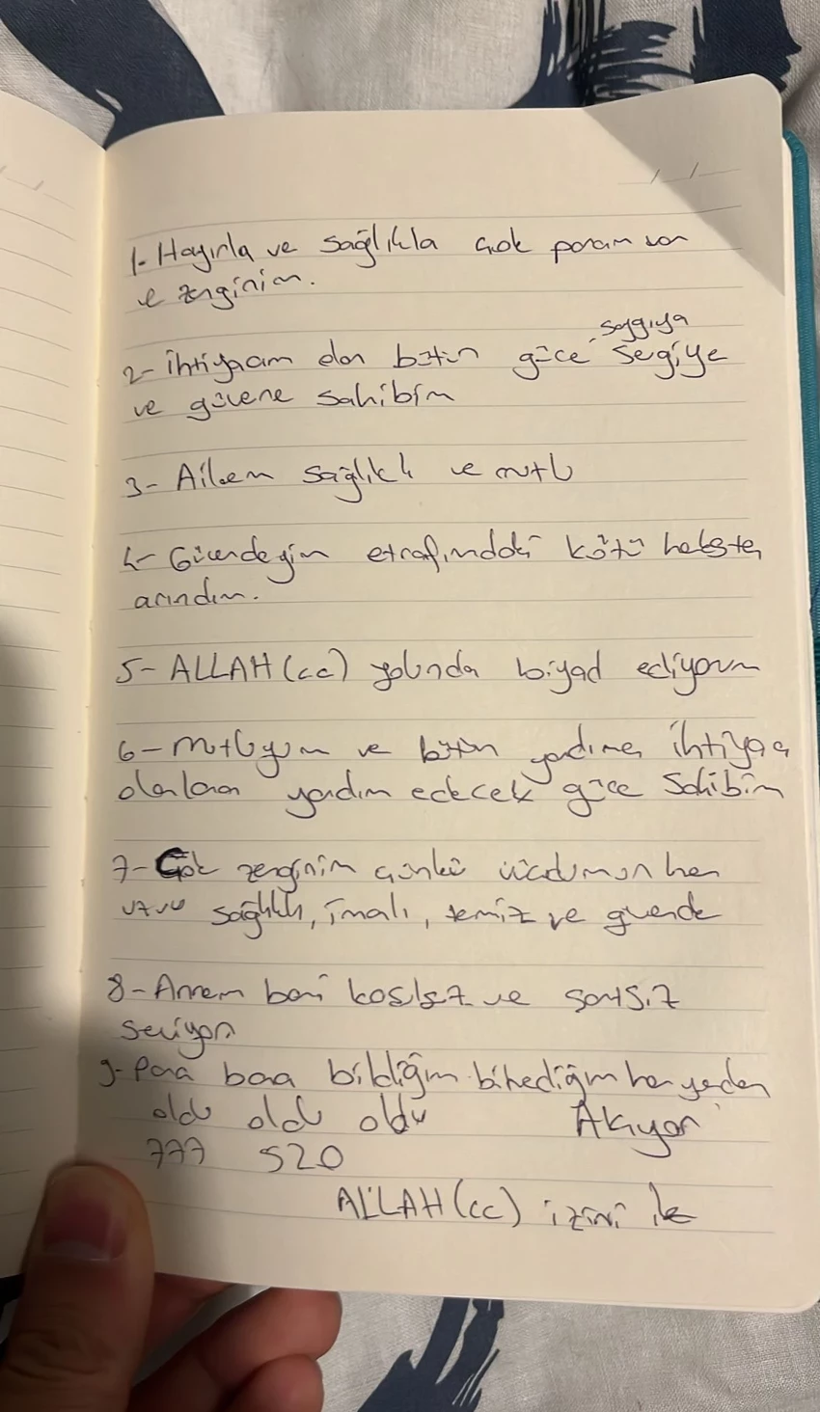 1- Hayırla ve sağlıkla çok param var
ve zenginim.
saygıya
2- ihtiyacım olan bütün güce, sevgiye
ve güvene sahibim
3- Ailem sağlıklı ve mutlu
4- Güvendeyim etrafımdaki kötü herkesten
arındım.
5- ALLAH(cc) yolunda ediyorum
6- mutluyum ve bütün yardıma ihtiyaç
olanlara yardım edecek güce sahibim
7- Çok zenginim çünkü vücudumun her
uzvu sağlıklı, imalı, temiz ve güvende
8- Annem beni koşulsuz ve şartsız
seviyor
9- Para bana bildiğim bilmediğim her yerden
oldu oldu oldu Akıyor
777 520
ALLAH(cc) izini ile